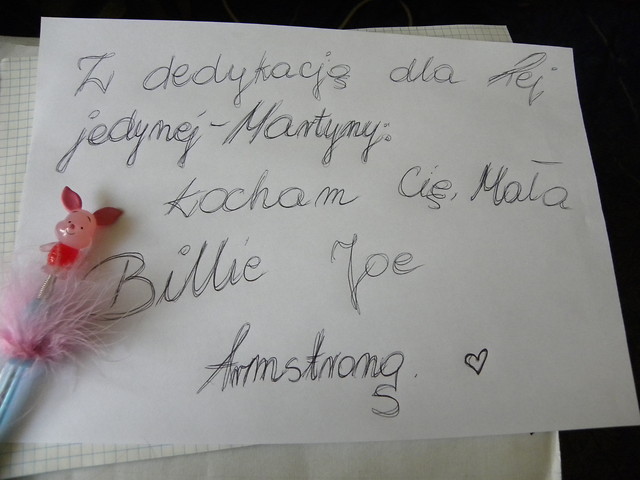 Z dedykacją dla tej
jedynej-Martyny:
kocham Cię, Mała
Billie Joe
Armstrong. ♡